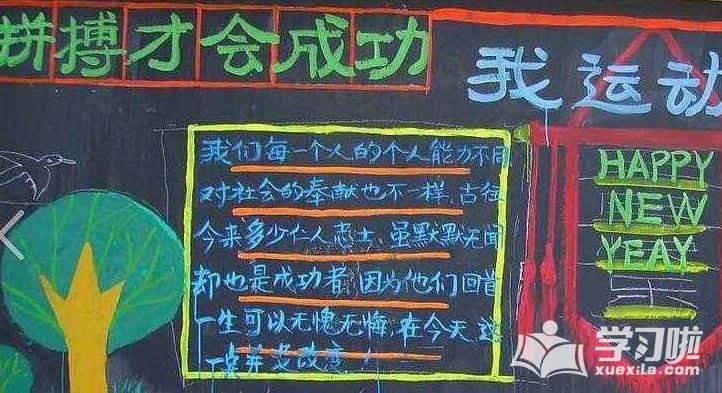 拼搏才会成功
我运动
我们每一个人的个人能力不同
对社会的奉献也不一样,古往
今来多少仁人志士,虽默默无闻
却也是成功者,因为他们回首
一生可以无愧无悔,在今天这
一点并没改变!
HAPPY
NEW
YEAY
学习啦
xuexila.com